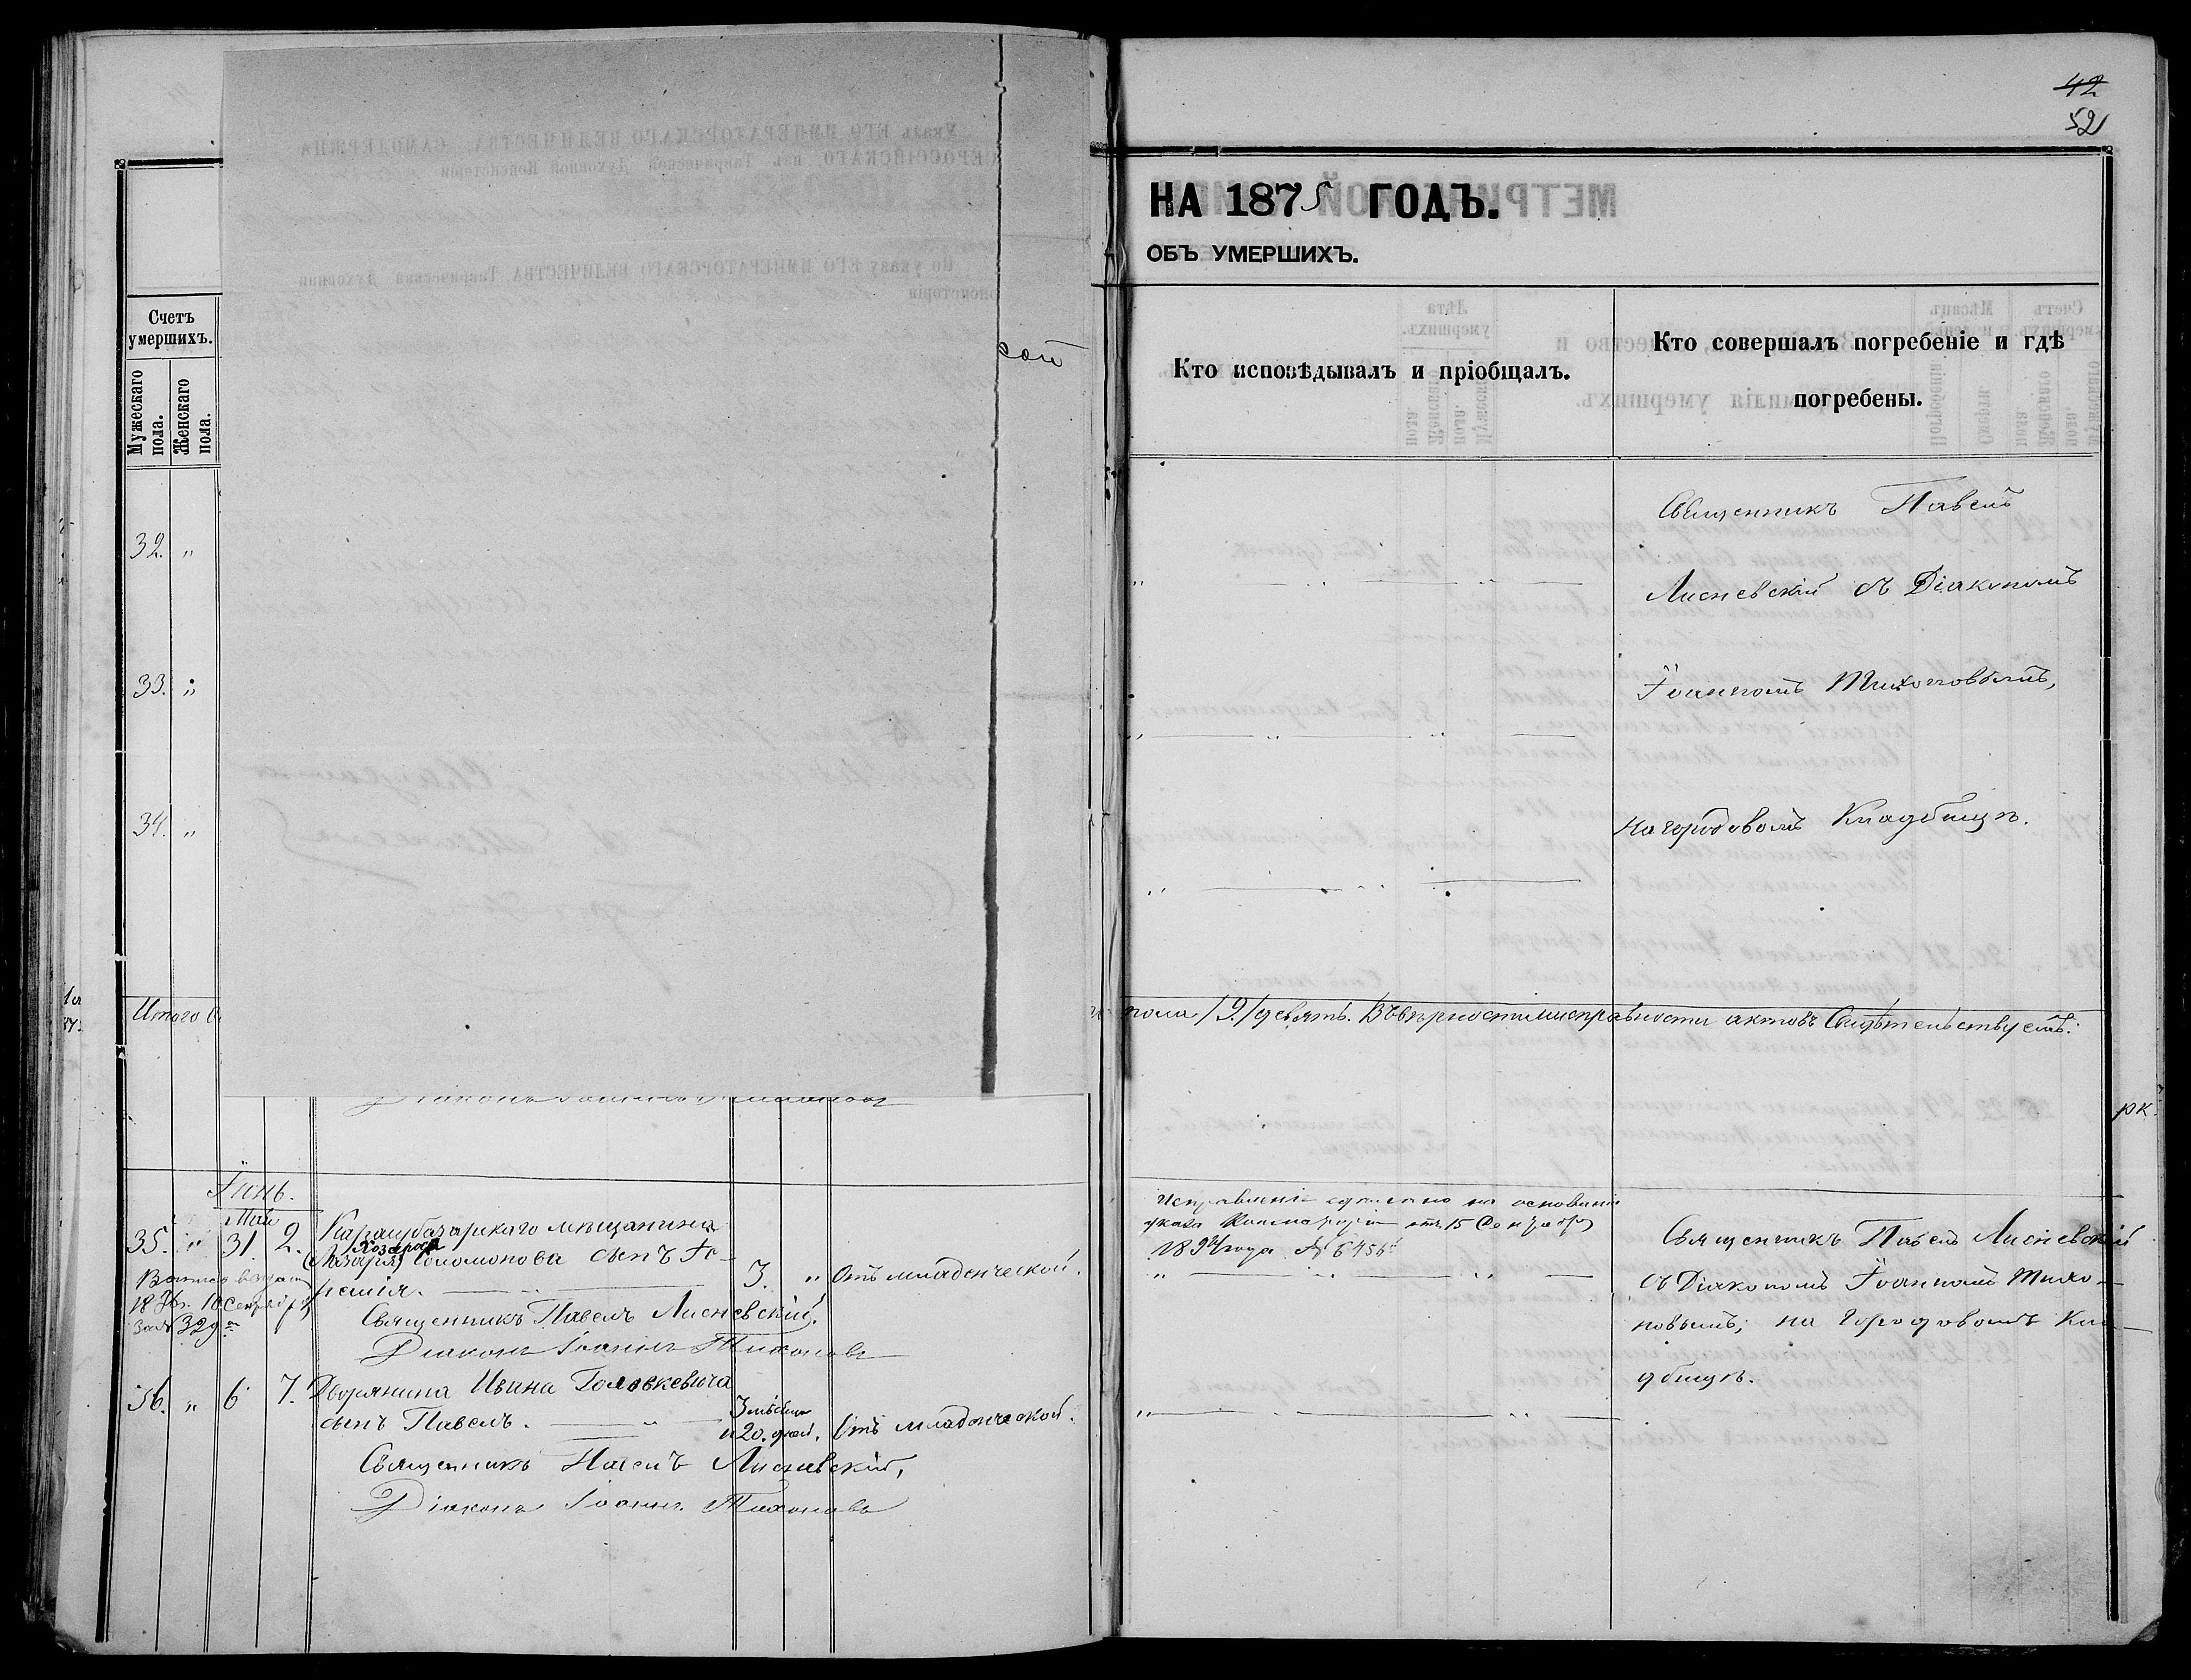 42
52
НА 1875 ГОДЪ.
ОБЪ УМЕРШИХЪ.
Счетъ
умершихъ.
Мужескаго
пола.
Женскаго
пола.
Кто исповѣдывалъ и пріобщалъ.
Кто совершалъ погребеніе и гдѣ
погребены.
32. "
33. "
34. "
Священникъ Павелъ
Лисневскій съ Діакономъ
Іоанномъ Тихоновымъ,
на городовомъ Кладбищѣ.
Итого
пола /9/ девять. Въ вѣрности и исправности актовъ Свидѣтельствуемъ:
Іюнь.
Май
35. " 31. 2. Карасубазарскаго мѣщанина
Лазаря Соломонова сынъ
3. " Отъ младенческой.
Священникъ Павелъ Лисневскій.
Діаконъ Іоаннъ Тихоновъ
36. " 6 7. Дворянина Ивана Головкевича
сынъ Павелъ. 3 мѣсяца
и 20. дней. Отъ младенческой.
Священникъ Павелъ Лисневскій,
Діаконъ Іоаннъ Тихоновъ
Исправленіе сдѣлано на основаніи
указа Консисторіи отъ 15 Сентября
1894 года № 6456
Священникъ Павелъ Лисневскій
съ Діакономъ Іоанномъ Тихо-
новымъ, на Городовомъ Кла-
дбищѣ.